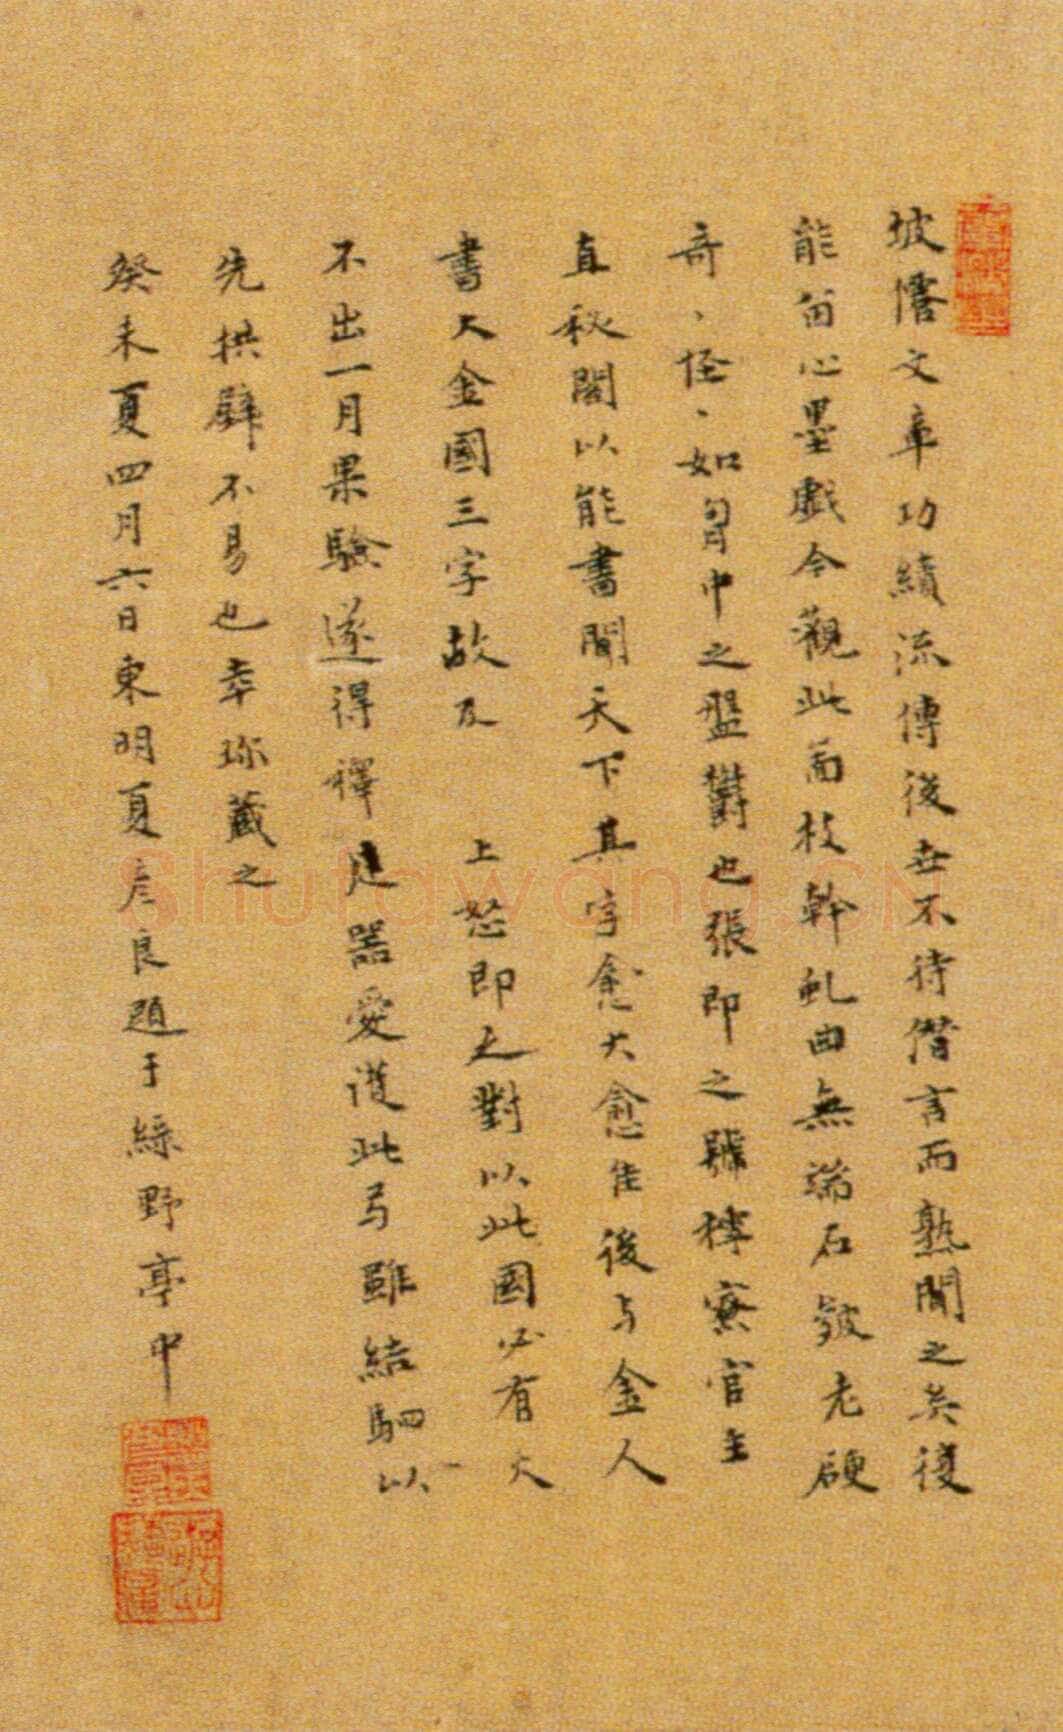 坡僊文章功績流傳後世不待僭言而熟聞之矣復
能留心墨戲今觀此畫枝幹虬曲無端石皴老硬
奇、怪、如胷中之盤鬱也張即之號樗寮官主
直秘閣以能書聞天下其字愈大愈佳後与金人
書大金國三字故及 上怒即之對以此國必有大
不出一月果驗遂得釋是器愛道此号雖結駟以
先拱璧不易也幸珎藏之
癸未夏四月六日東明夏彦良題于綠野亭中
Shufawang.CN